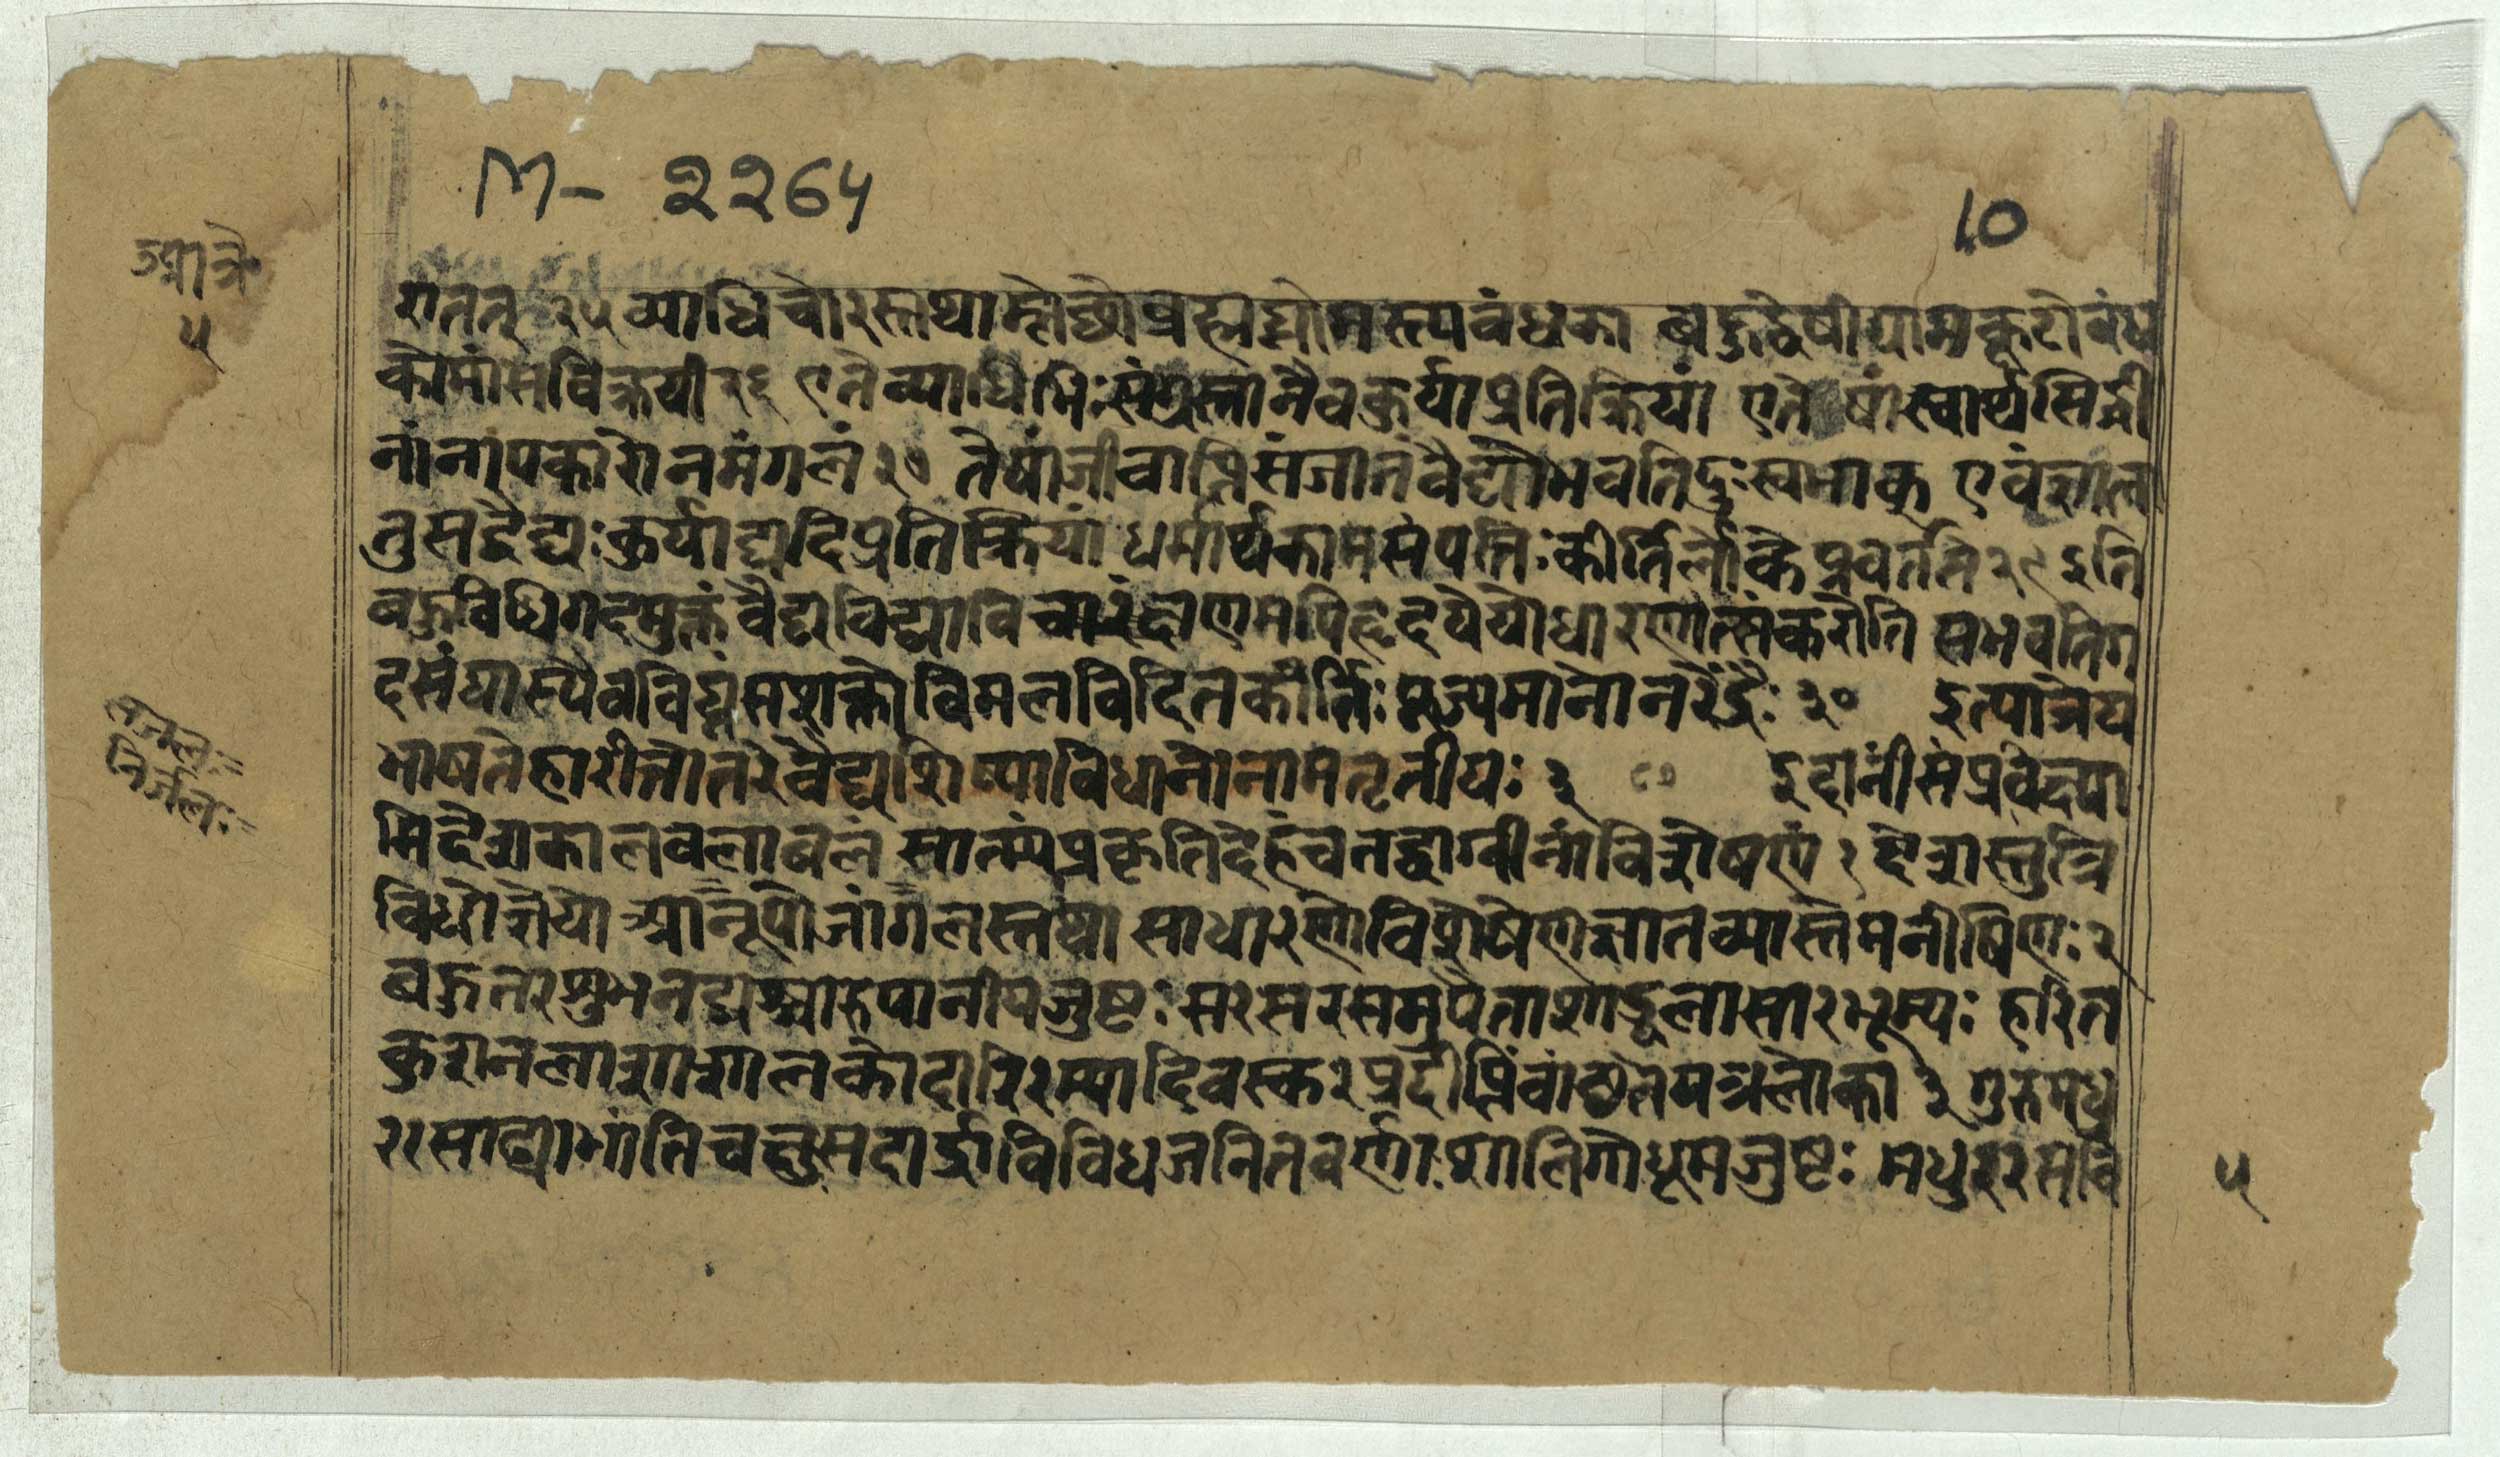 M- 2264
10
आत्रे॰
५
शंततु २५ व्याधिचोरस्तथाम्लेछोब्रह्मघ्नोमत्स्यबंधका बहुद्वेषीग्रामकूटोबंध
कोमांसविक्रयी २६ एतेव्याधिभिःसंग्रस्तानैवकुर्यात्प्रतिक्रियां एतेषांस्वार्थसिद्धी
नांनापकारोनमंगलं २७ तेषांजीवाप्तिसंजातंवैद्योभवतिदुःखभाक् एवंज्ञात्व
तुसद्वैद्यःकुर्याद्यदिप्रतिक्रियां धर्मार्थकामसंपत्तिःकीर्तिर्लोकेप्रवर्तते २९ इति
बहुविधिगदमुक्तंवैद्यविद्याविचारंक्षणमपिहृदययोधारणात्संकरोति सभवतिग
दसंघास्यैवविघ्नंसशक्तोविमलविदितकीर्त्तिःपूज्यमानोनरेंद्रैः ३० इत्यात्रेय
भाषितेहारीत्तोत्तरेवैद्यशिष्याविधानोनामतृतीयः ३ इदानींसंप्रवक्ष्या
मिदेशकालबलाबलं सात्म्यंप्रकृतिदेहंचतद्वाग्नीनांविशेषणं १ देशस्तुत्रि
विधोज्ञेयो आनूपोजांगलस्तथा साधारणोविशेषेणज्ञातव्यास्तेमनीषिणः २
सजलः=
निर्जलः=
बहुतरशुभनद्यश्चारुपानीयजुष्टः सरसरसमुपेताशाद्वलासारभूम्यः हरित
कुशनलाशशालकोदारिरम्यादिवस्करप्रदीप्तिंवांछतेयत्रलोका ३ गुरुमधु
ररसाढ्याभांतिचक्षुसदार्द्राविविधजनितवर्णाःशालिगोधूमजुष्टः मधुररसवि
५